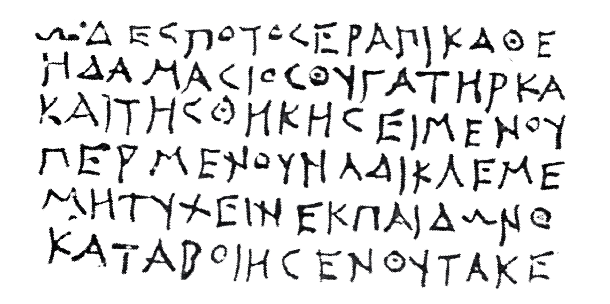 ΩΔΕCΠΟΤΟCΕΡΑΠΙΚΑΘΕ
ΗΔΑΑΜΑCΙΟCΘΥΓΑΤΗΡΚΑ
ΚΑΙΤΗCΘΗΚΗCΕΙΜΕΝΟΥ
ΠΕΡΜΕΝΟΥΝΑΔΙΚΑΕΜΕ
ΜΗΤΥΧΕΙΝΕΚΠΑΙΔΩΝΘ
ΚΑΤΑΒΟΙΗCΕΝΘΥΤΑΚΕ